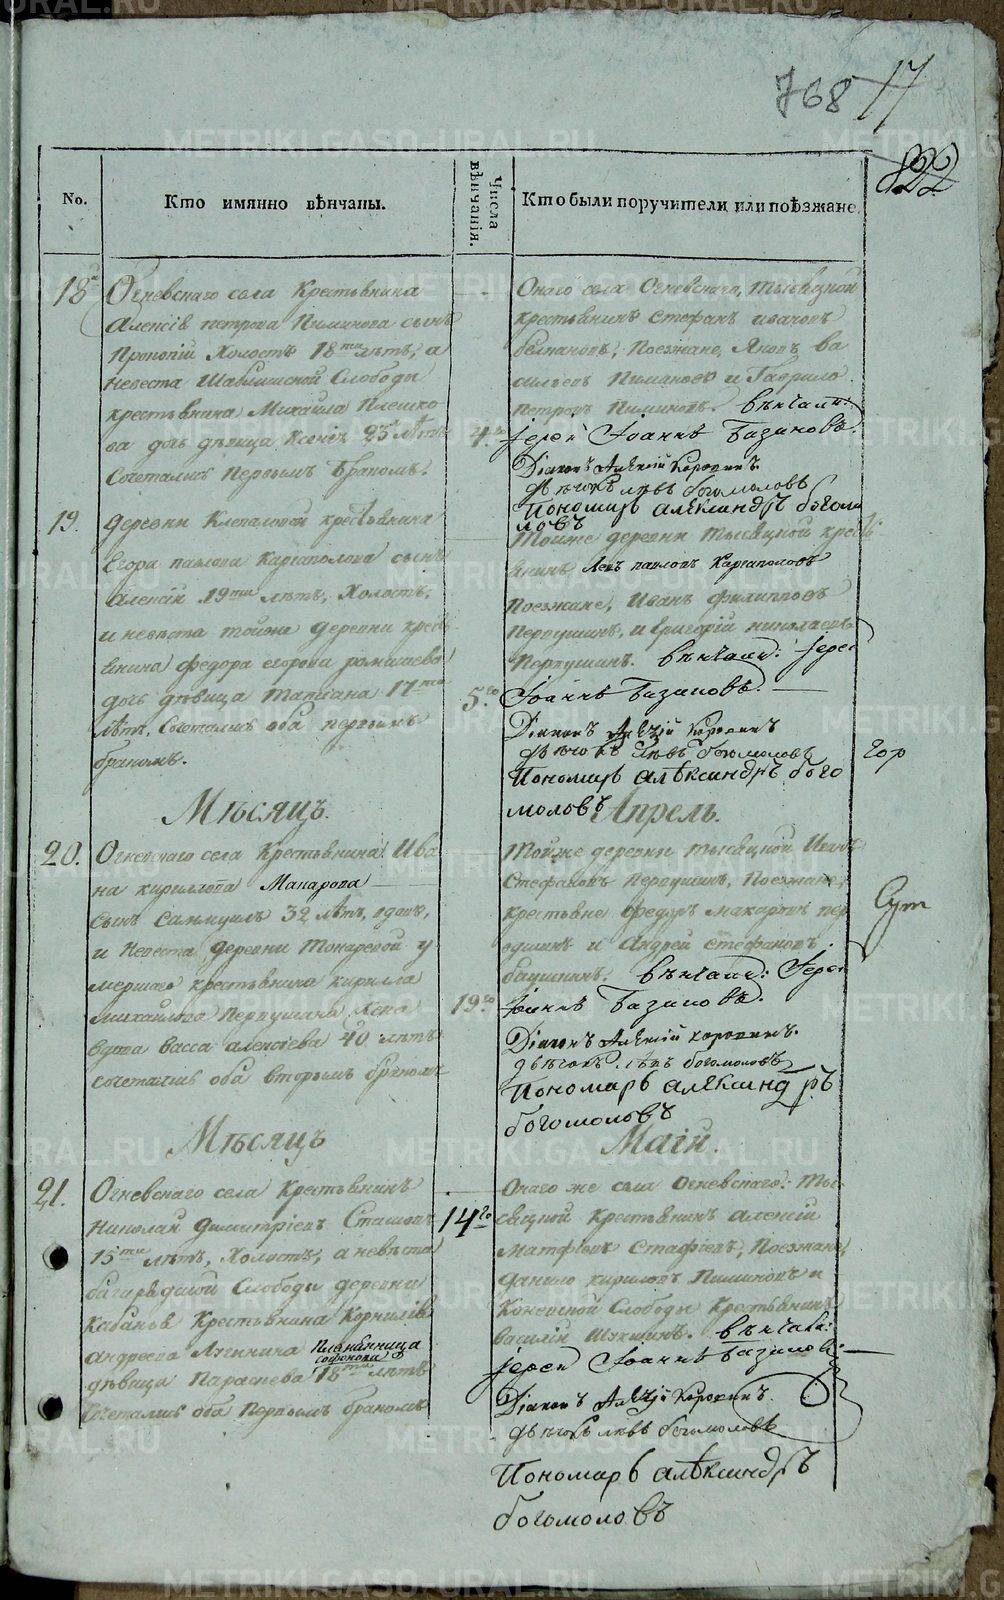 768 17
822
No.
Кто имянно вѣнчаны.
Числа вѣнчанія.
Кто были поручители или поѣзжане.
18й
Огневскаго села Крестьянина
Алексія петрова Пиминова сынъ
Прокопій Холостъ 18ти лѣтъ, а
невеста Шаблишской Слободы
крестьянина Михаила Плешко
ва дочь дѣвица Ксенія 25 лѣтъ
Сочетались Первымъ бракомъ.
4.го
Онаго села Огневскаго, тысяцкой
крестьянинъ Стефанъ
Поезжане, Яковъ Ва
сильевъ Пиминовъ и Гаврило
петровъ Пиминовъ. вѣнчали:
Іерей Іоаннъ Базиловъ.
Діаконъ Алексій Коровинъ
дьячокъ левъ богомоловъ
Пономарь александръ богомо
ловъ
19.
деревни Клепаловой крестьянина
Егора павлова Каргаполова сынъ
Алексій 19ти лѣтъ, Холостъ,
и невѣста тойже деревни крес
янина федора егорова
дочь дѣвица Татиана 17ти
лѣтъ, Сочетались оба первымъ
бракомъ.
5.го
Тойже деревни тысяцкой крес
янинъ Левъ павловъ Каргаполовъ
Поезжане, Иванъ филипповъ
Первушинъ, и григорій николаевъ
Первушинъ. вѣнчали: Іерей
Іоаннъ Базиловъ.
Діаконъ Алексій Коровинъ
дьячокъ Левъ богомоловъ
Пономарь александръ бого
моловъ
Мѣсяцъ. Апрель.
20.
Огневскаго села Крестьянина Ива
на кириллова Макарова
сынъ самуилъ 32 лѣтъ, вдовъ,
и невеста деревни Токаревой у
мершаго крестьянина кирила
михайлова Первушина жена
вдова васса алексіева 40 лѣтъ
сочетались оба вторымъ бракомъ
19.го
Тойже деревни тысяцкой Иванъ
Стефановъ Первушинъ, Поезжане,
крестьяне федоръ макаровъ пер
вушинъ и андрей стефановъ
вѣнчали: Іерей
Іоаннъ Базиловъ.
Діаконъ Алексій коровинъ.
дьячокъ левъ богомоловъ
Пономарь александръ
богомоловъ
Мѣсяцъ Маій.
21.
Огневскаго села Крестьянинъ
Николай димитріевъ
15ти лѣтъ, Холостъ, а невѣста
багаряцкой Слободы деревни
Кабановой Крестьянина Корнилія
андреева Лягинина Племянница
софонова
дѣвица Параскева 18ти лѣтъ
Сочетались оба Первымъ бракомъ
14го
Онаго же села Огневскаго. Ты
сяцкой Крестьянинъ алексій
матфіевъ Стафіевъ, Поезжане,
данило кириловъ Пиминовъ и
Коневской Слободы Крестьянинъ
василій вѣнчали:
Іерей Іоаннъ Базиловъ
Діаконъ Алексій Коровинъ.
дьячокъ левъ богомоловъ
Пономарь александръ
богомоловъ
METRIKI.GASO-URAL.RU